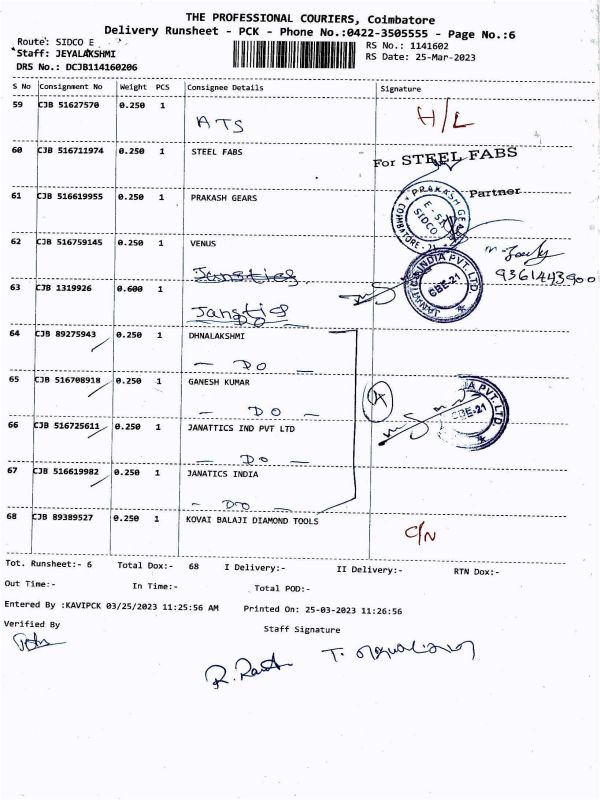 THE PROFESSIONAL COURIERS, Coimbatore
Delivery Runsheet - PCK - Phone No.:0422-3505555 - Page No.:6
Route: SIDCO E
Staff: JEYALAKSHMI
DRS No.: DCJB114160206
RS No.: 1141602
RS Date: 25-Mar-2023
S No Consignment No Weight PCS Consignee Details Signature
59 CJB 51627570 0.250 1
ATS H/L
60 CJB 516711974 0.250 1 STEEL FABS
For STEEL FABS
Partner
61 CJB 516619955 0.250 1 PRAKASH GEARS
PRAKASH GE
SIDCO
COIMBATORE - 21
62 CJB 516759145 0.250 1 VENUS
9361443900
JANATICS INDIA PVT. LTD.
CBE-21
63 CJB 1319926 0.600 1
64 CJB 89275943 0.250 1 DHNALAKSHMI
- DO -
65 CJB 516708918 0.250 1 GANESH KUMAR
- DO -
A PVT. LTD.
CBE-21
66 CJB 516725611 0.250 1 JANATTICS IND PVT LTD
- DO -
67 CJB 516619982 0.250 1 JANATICS INDIA
- DO -
68 CJB 89389527 0.250 1 KOVAI BALAJI DIAMOND TOOLS
C/N
Tot. Runsheet:- 6 Total Dox:- 68 I Delivery:- II Delivery:- RTN Dox:-
Out Time:- In Time:- Total POD:-
Entered By :KAVIPCK 03/25/2023 11:25:56 AM Printed On: 25-03-2023 11:26:56
Verified By Staff Signature